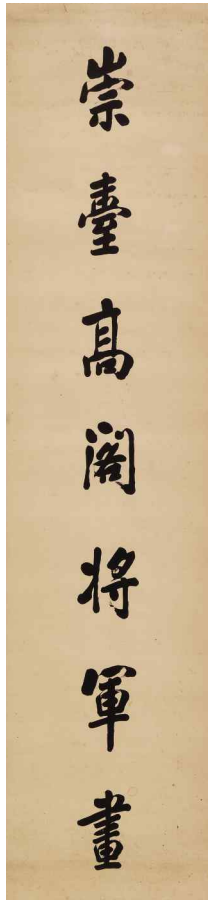 崇臺高閣将軍畫